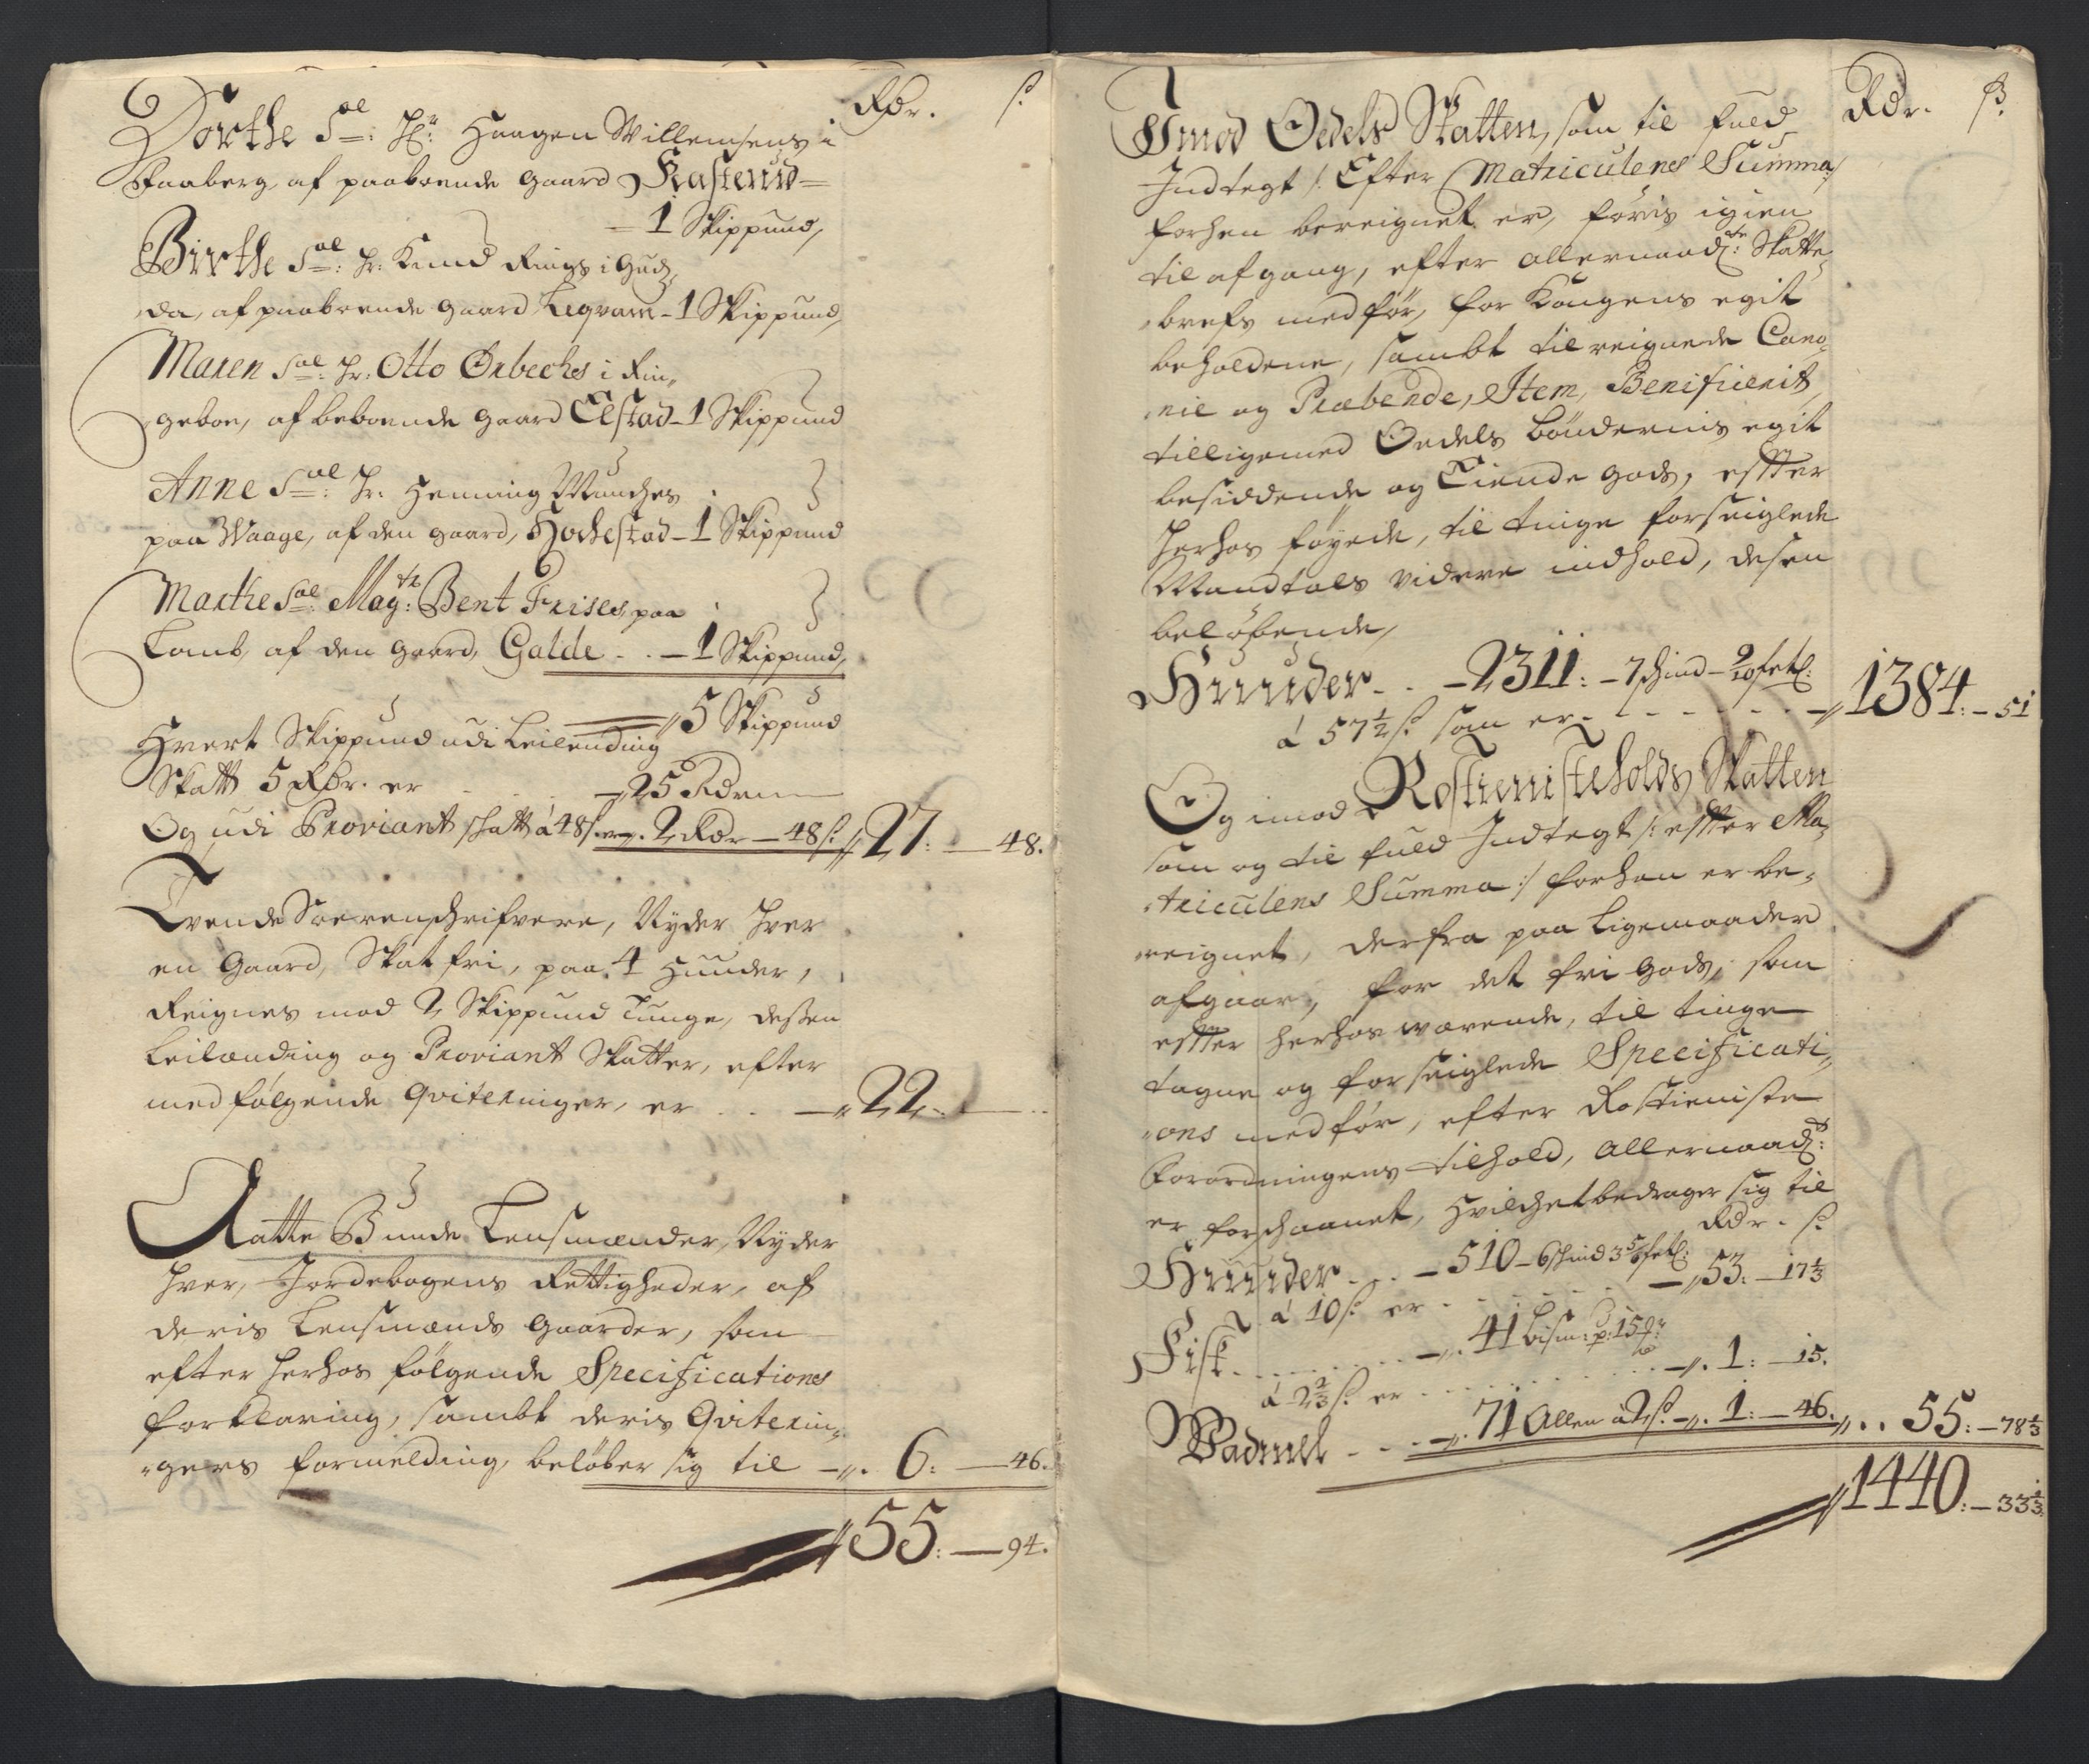 Rdr. ß.
Dorthe Sal: Hr: Haagen Willemsens i
Faaberg, af paaboende gaard Kasterud
1 Skippund,
Birthe Sal: Hr: Knud Rings i Guds,
da, af paaboende gaard Leqvam - 1 Skippund,
Maren Sal: Hr: Otto Ørbechs i Rin,
geboe, af beboende gaard Elstad - 1 Skippund
Anne Sal: Hr: Henning Munches
paa Waage, af den gaard, - 1 Skippund
Marthe Sal: Mag: Bent Frises, paa
Lomb, af den gaard, Galde - - 1 Skippund,
5 Skippund
Hvert Skippund udi Leilending
Skatt 5 Rdr. er - 25 Rdr
Og udi Proviant skatt á 48 ß. er 2 Rdr - 48 ß. 27: - 48.
Tvende Soerenschrifvere, Nyder hver
en Gaard, Skat fri, paa 4 Huuder,
Reignes mod 2 Skippund Tunge, dessen
Leilænding og Proviant Skatter, efter
medfølgende Qviteringer, er - 22: -
Aatte Bunde Lensmænder, Nyder
hver, Jordebogens Rettigheder, af
deris Lensmands Gaarder, som
efter herhos følgende Specifications
forklaring, sambt deris Qviterin,
gers formelding, beløber sig til - 6: - 46.
55: - 94.
Rdr. ß.
Imod Odels Skatten, som til fuld
Indtegt /: Efter Matriculens Summa :/
forhen bereignet er, føris igien
til afgang, efter allernaad: Skatte
brefs medfør, for Kongens egit
beholdene, sambt tilreignede Cano,
nie og Præbende, Item, Benificerit
tilligemed Odels Bøndernis egit
besiddende og Tiende gods, effter
herhos føyede, til tinge forseiglede
Mandtals videre indhold, desen
beløbende,
Huuder - - 2311: - 7 schind - 9/10
á 57 1/2 ß. som er - - - - - 1384: - 51
Og imod Rostienisteholds Skatten
som og til fuld Indtegt /: effter Ma,
triculens Summa :/ forhen er be,
reignet, derfra paa Ligemaader
afgaar, for det fri gods, som
effter herhos værende, til tinge
tagne og forseiglede Specificati,
ons medfør, efter Rostieniste
Forordningens tilhold, allernaad:
er forschaanet, hvilchet bedrager sig til
Rdr. ß.
Huuder - - 510 - 6 schind 3 5/6
á 10 ß. er - - - - 53: - 17 1/3
Fisk - - - 41 bism: p: 15
á 2 2/3 ß. er - - - - 1: - 15.
Wadmel - - - 71 Allen á 2 ß. - 1: - 46. 55: - 78 1/3
1440: - 33 1/3